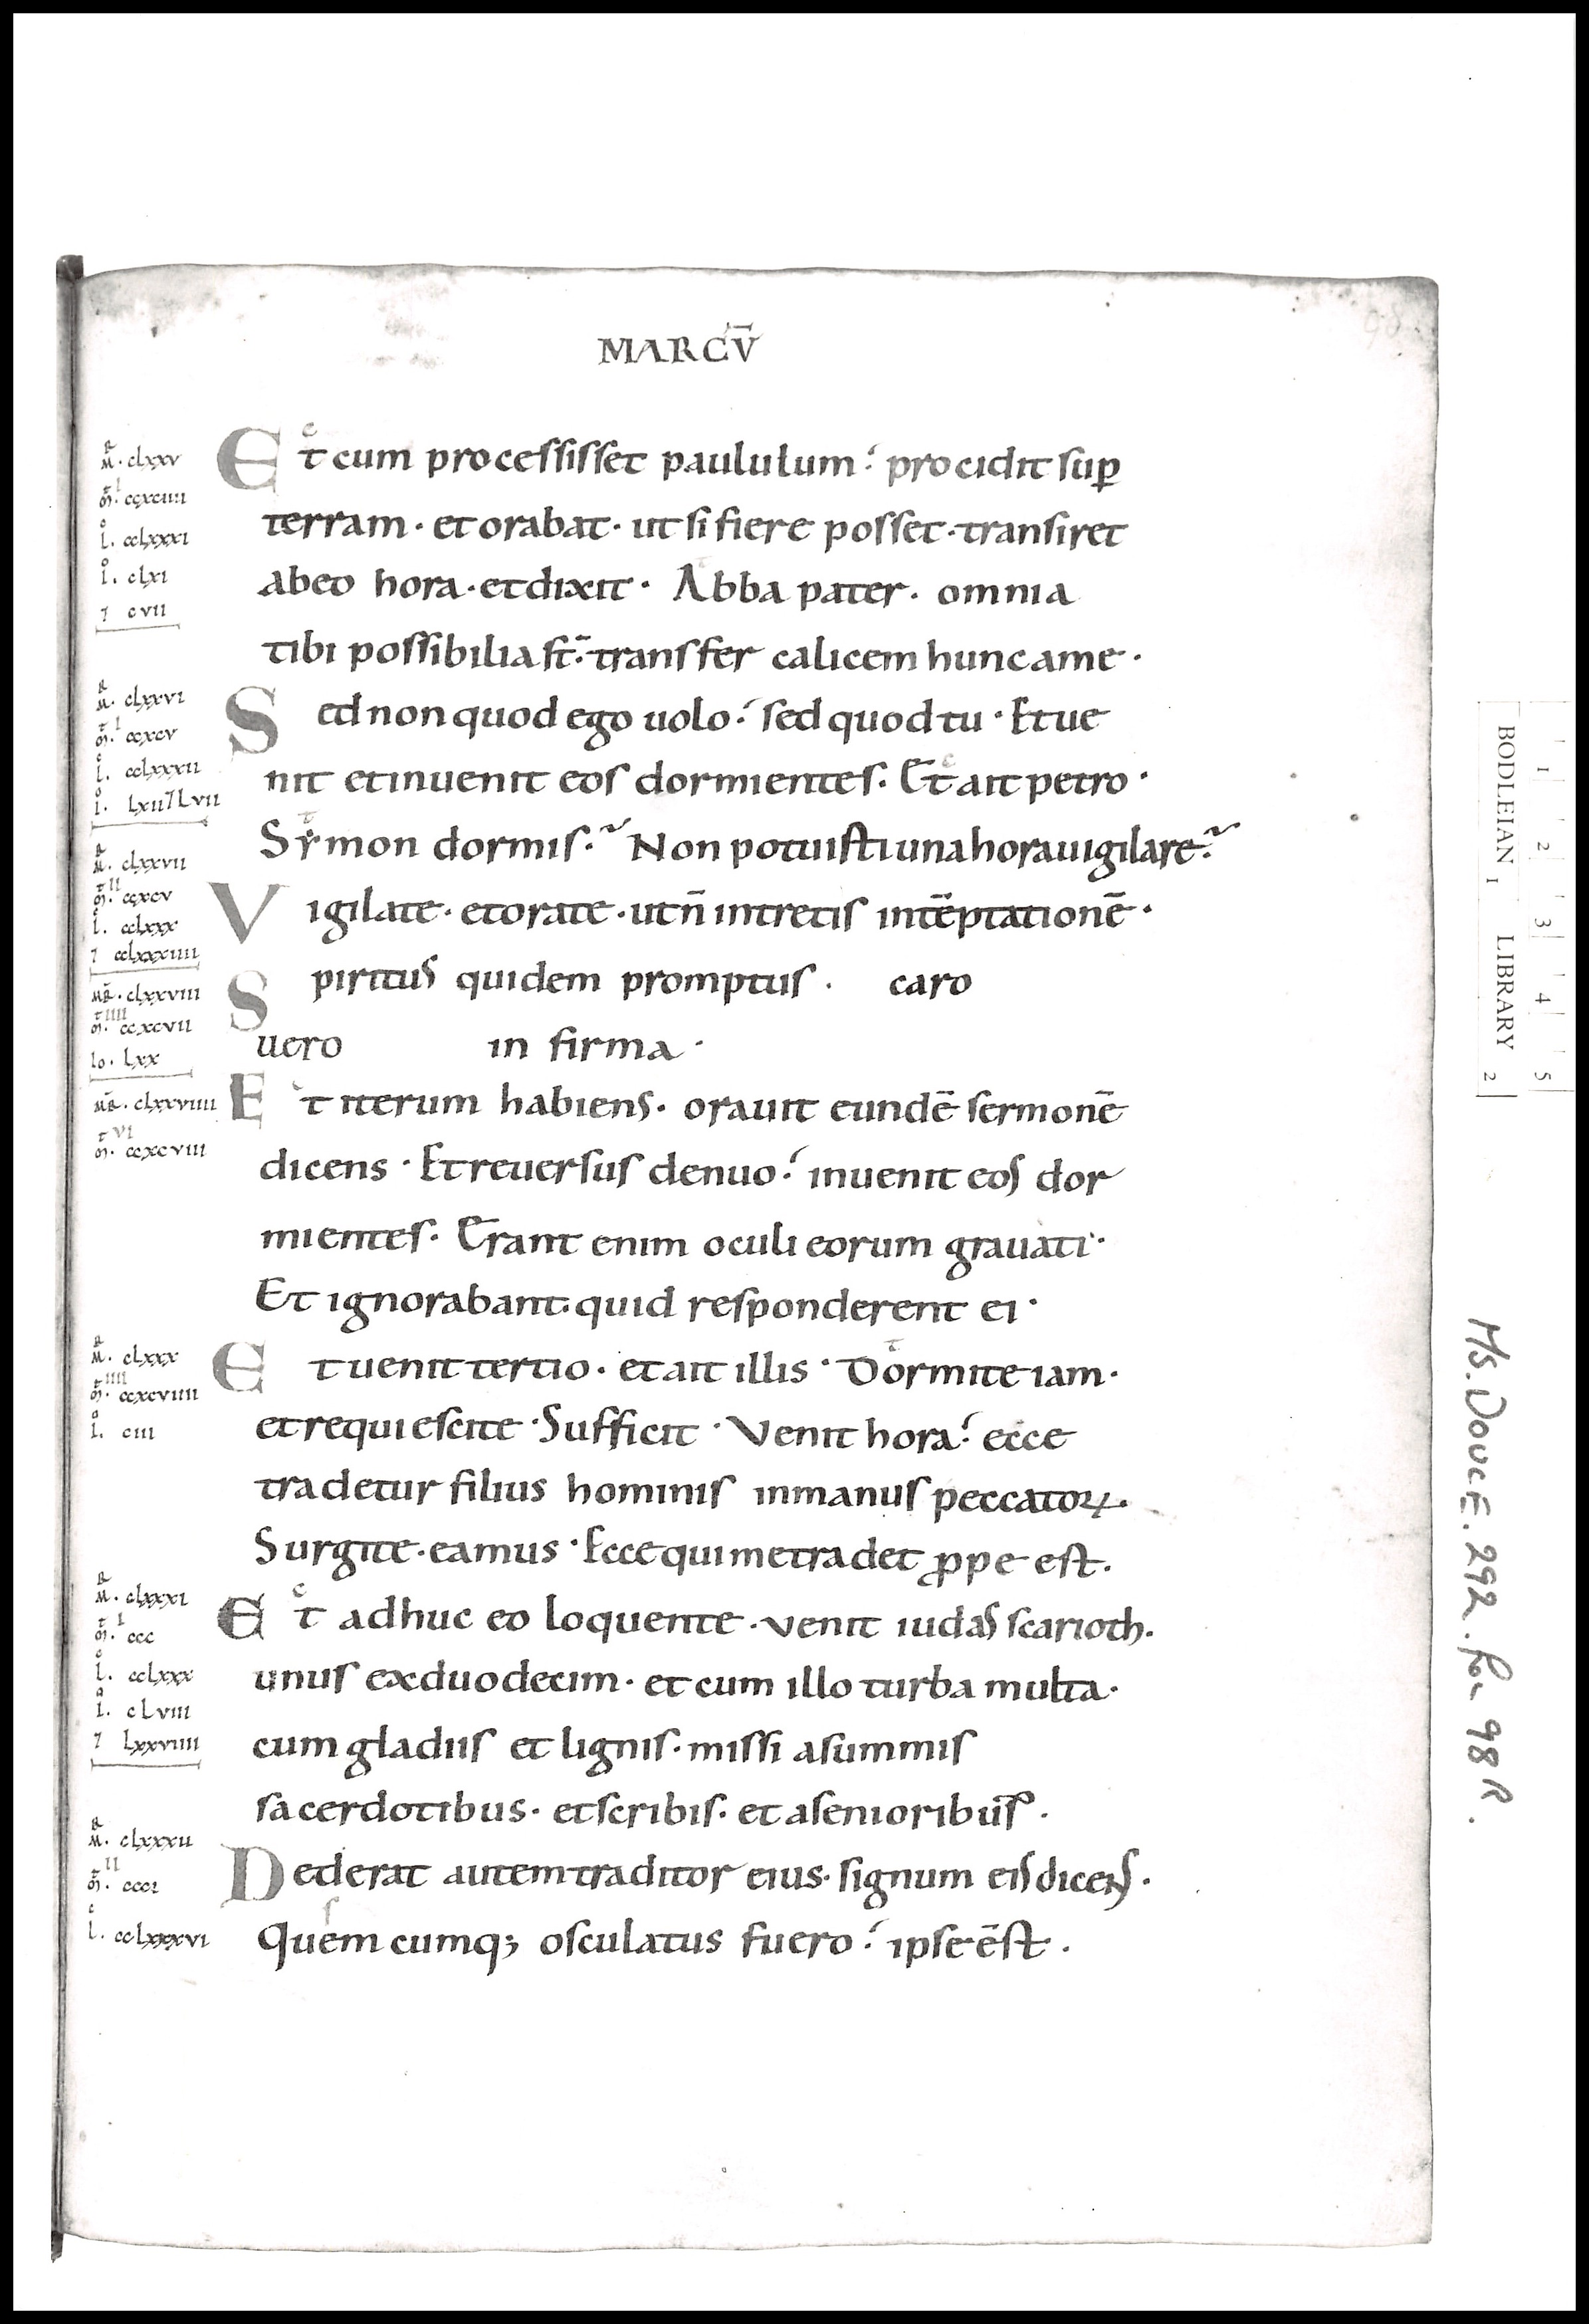 MARCV̄
98
Et cum processisset paululum. procidit sup̄
terram· et orabat· ut si fiere posset· transiret
ab eo hora· et dixit· Abba pater· omnia
tibi possibilia st̄· transfer calicem hunc a me·
Sed non quod ego uolo· sed quod tu· Et ue
nit et inuenit eos dormientes· Et ait petro·
Symon dormis? Non potuisti una hora uigilare?
Vigilate· et orate· ut n̄ intretis in tēptationē·
Spiritus quidem promptus· caro
uero in firma·
Et iterum habiens· orauit eundē sermonē
dicens· Et reuersus denuo· inuenit eos dor
mientes· Erant enim oculi eorum grauati·
Et ignorabant· quid responderent ei·
Et uenit tertio· et ait illis· Dormite iam·
et requiescite· Sufficit· Venit hora· ecce
tradetur filius hominis in manus peccatoꝝ·
Surgite· eamus· Ecce qui me tradet ꝓpe est·
Et adhuc eo loquente· venit iudas scarioth·
unus ex duodecim· et cum illo turba multa·
cum gladiis et lignis· missi a summis
sacerdotibus· et scribis· et a senioribus·
Dederat autem traditor eius· signum eis dicens·
Quem cumq; osculatus fuero· ipse ēst·
M̄R· clxxv
m̄t· I ccxciiii
l· cclxxxi
i· clxi
⁊ cvii
M̄R· clxxvi
m̄t· I ccxcv
l· cclxxxii
i· Lxii ⁊ Lvii
M̄R· clxxvii
m̄t· II ccxcv
l· cclxxx
⁊ cclxxxiiii
M̄R· clxxviii
m̄t· IIII ccxcvii
io· Lxx
M̄R· clxxviiii
m̄t· VI ccxcviii
M̄R· clxxx
m̄t· IIII ccxcviiii
i· ciii
M̄R· clxxxi
m̄t· I ccc
l· cclxxx
i· cLviii
⁊ Lxxviiii
M̄R· clxxxii
m̄t· II ccci
l· cclxxxvi
BODLEIAN LIBRARY
1 2
1 2 3 4 5
MS. DOUCE. 292. fol 98 R.